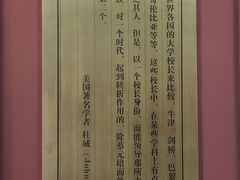 世界各国的大学校长来比较，牛津、剑桥、巴黎
哥伦比亚等等，这些校长中，在某些学科上有
之其人，但是，以一个校长身份，而能领导那所
族、对一个时代，起到转折作用的，除蔡元培而
第二个。
美国著名学者 杜威（John